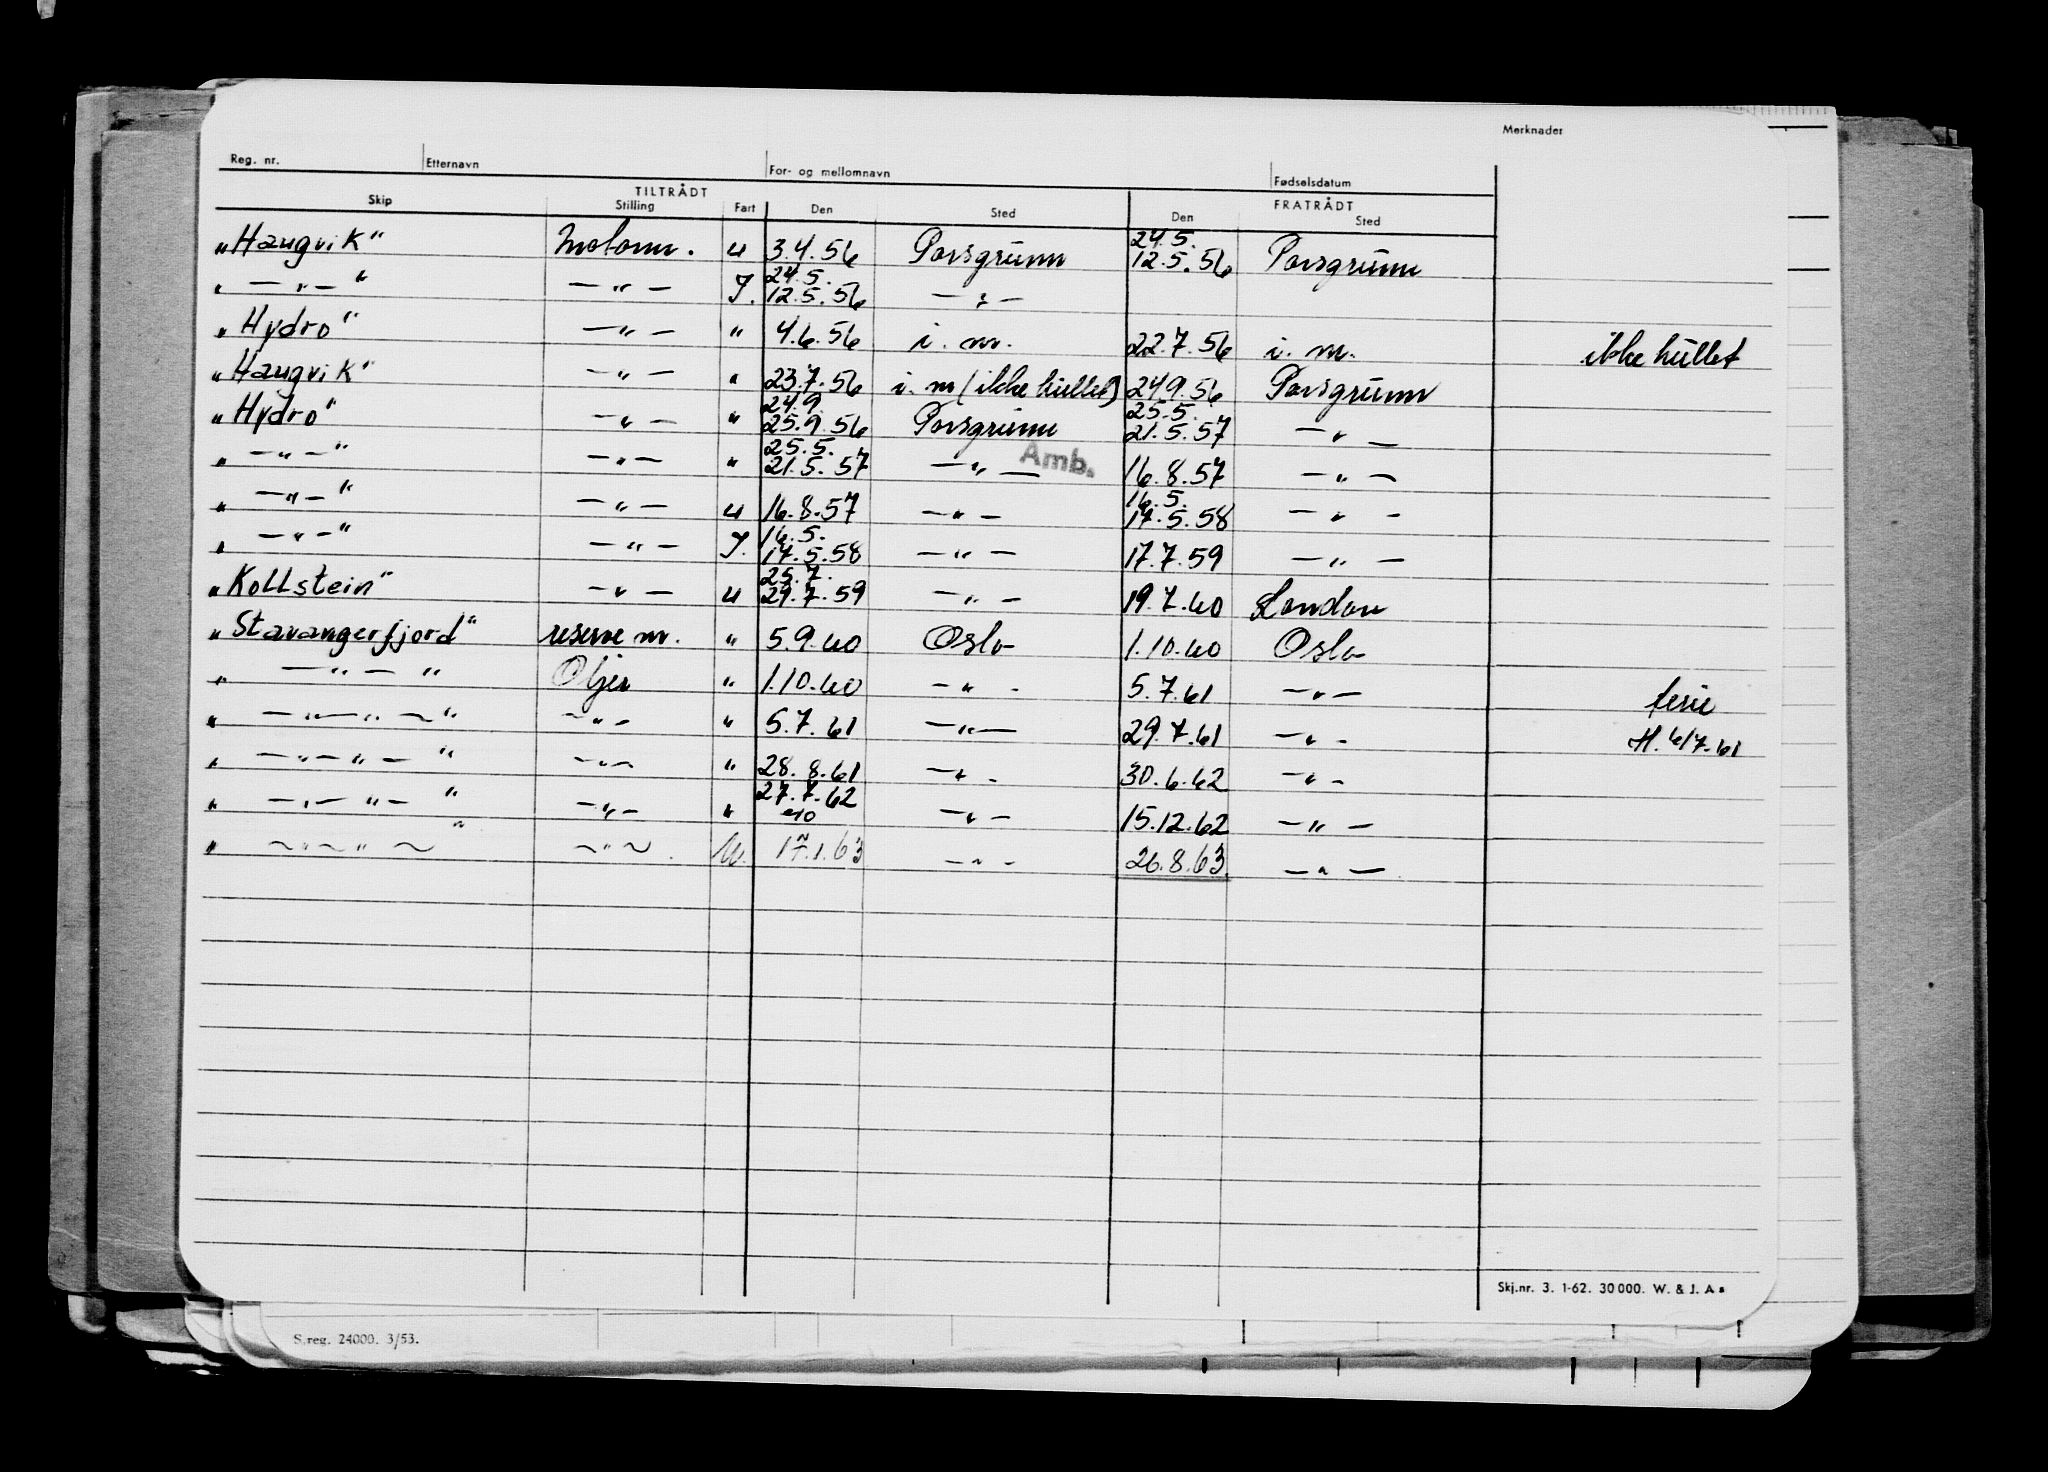 Merknader
Reg. nr. Etternavn For- og mellomnavn Fødselsdatum
TILTRÅDT FRATRÅDT
Skip Stilling Fart Den Sted Den Sted
24.5.
"Haugvik" Motorm. u 3.4.56 Porsgrunn 12.5.56 Porsgrunn
24.5.
" — " — " — " — J. 12.5.56 — " —
"Hydro" — " — " 4.6.56 i. m. 22.7.56 i. m. ikke hullet
"Haugvik" — " — " 23.7.56 i. m (ikke hullet) 24.9.56 Porsgrunn
24.9. 25.5.
"Hydro" — " — " 25.9.56 Porsgrunn 21.5.57 — " —
25.5. Amb.
" — " — " — " — " 21.5.57 — " — 16.8.57 — " —
16.5.
" — " — " — " — u 16.8.57 — " — 17.5.58 — " —
16.5.
" — " — " — " — J. 17.5.58 — " — 17.7.59 — " —
25.7.
"Kollstein" — " — u 29.7.59 — " — 19.7.60 London
"Stavangerfjord" reserve m. " 5.9.60 Oslo 1.10.60 Oslo
" — " — " Oljer " 1.10.60 — " — 5.7.61 — " — ferie
" — " — " — " — " — " 5.7.61 — " — 29.7.61 — " — H. 6/7-61
" — " — " — " — " — " 28.8.61 — " — 30.6.62 — " —
" — " — " — " — " — " 27.7.62 — " — 15.12.62 — " —
" — " — " — " — " — U. 17.1.63 — " — 26.8.63 — " —
Skj.nr. 3. 1-62. 30 000. W. & J. A s
S.reg. 24000. 3/53.